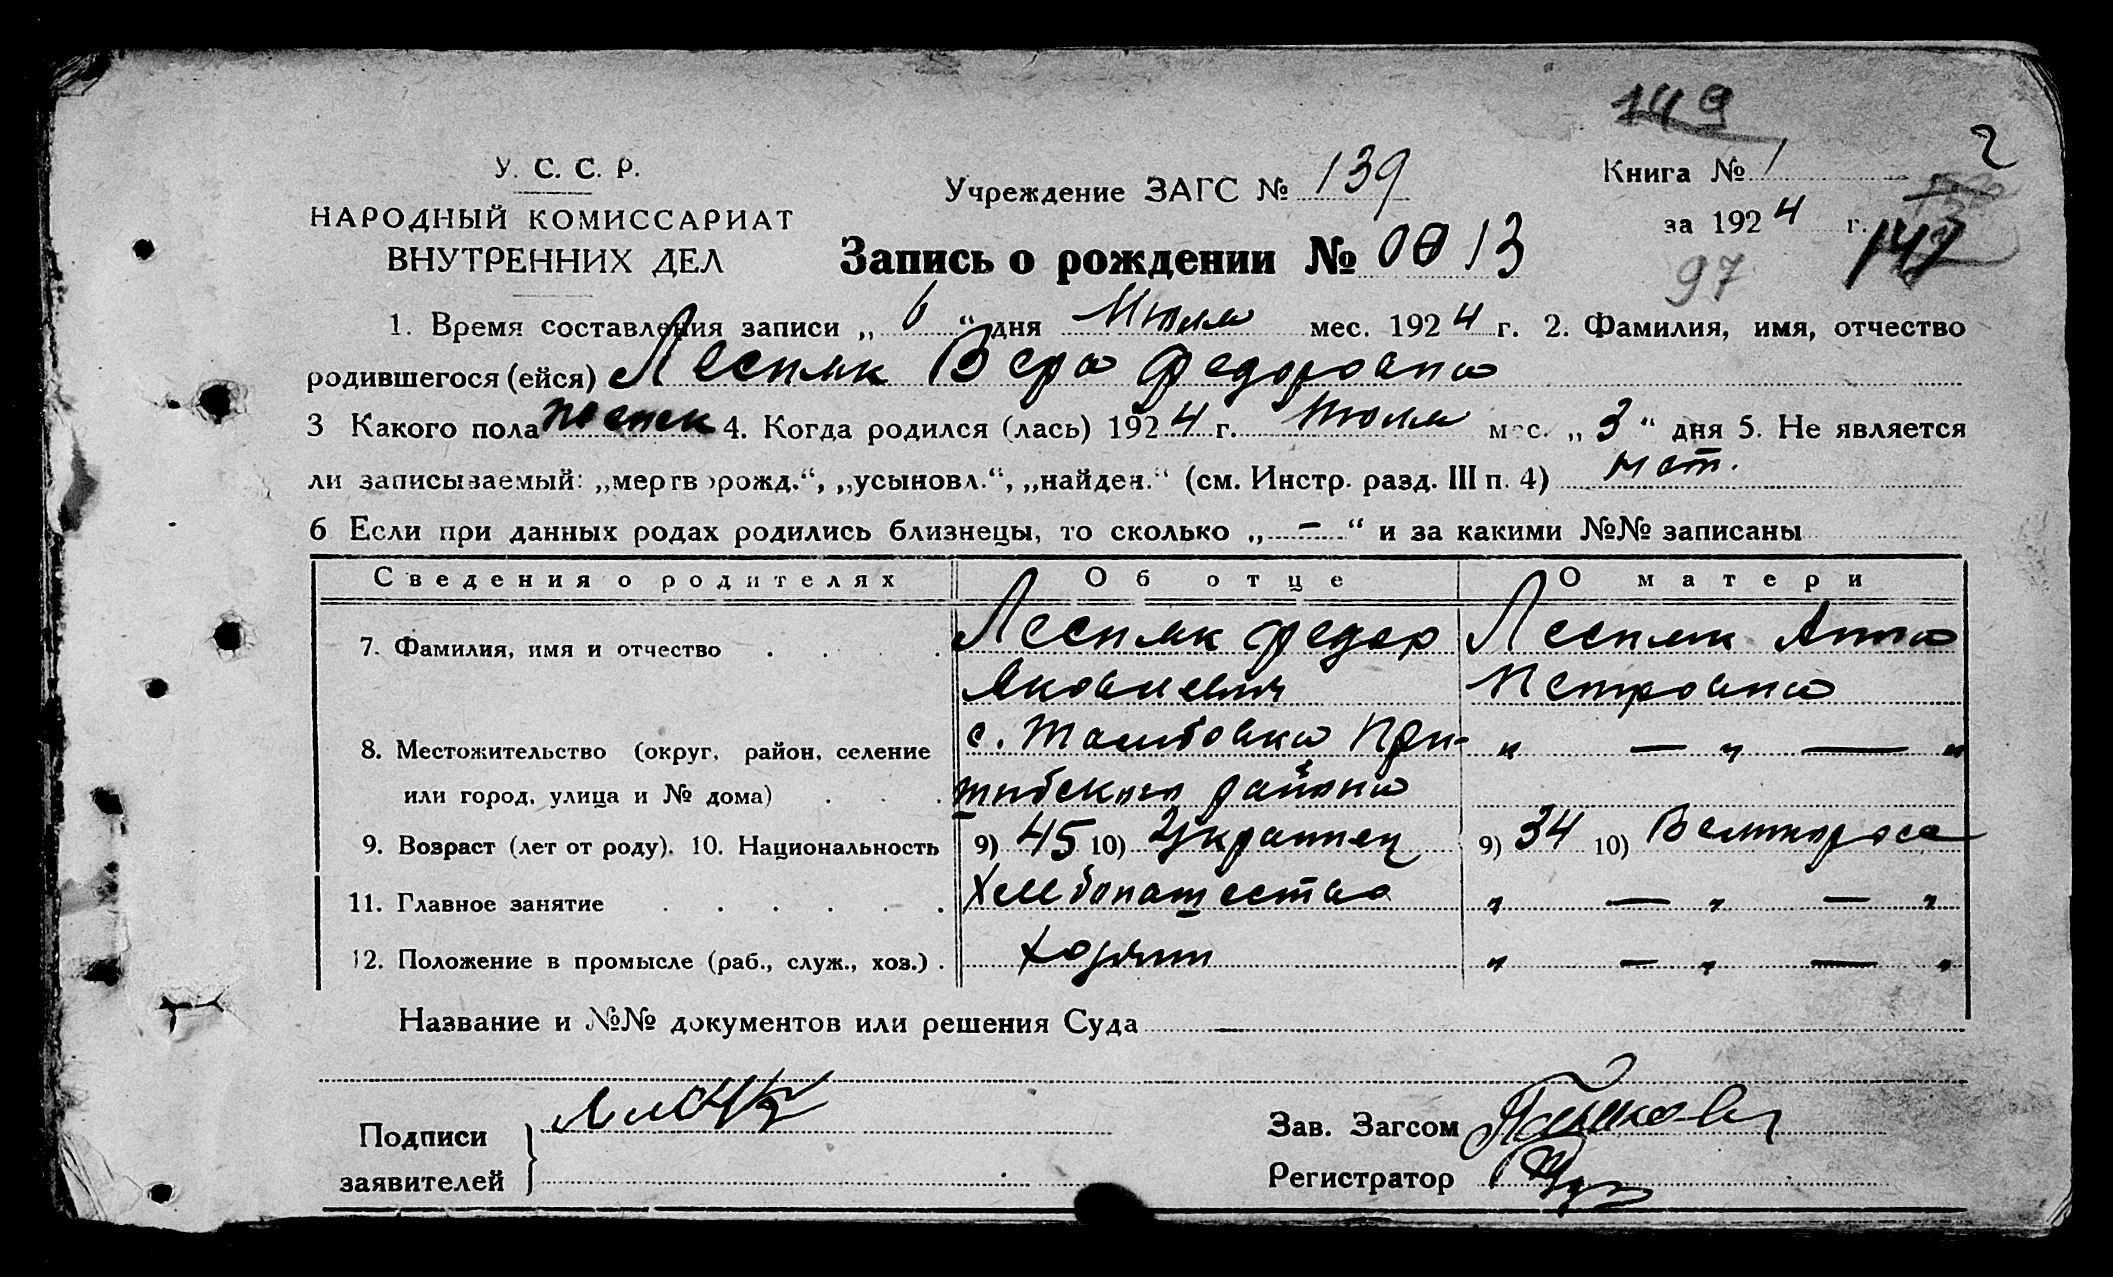 149
2
У. С. С. Р.
Учреждение ЗАГС № 139
Книга № 1
НАРОДНЫЙ КОМИССАРИАТ
за 1924 г.
ВНУТРЕННИХ ДЕЛ
Запись о рождении № 0013
97
147
1. Время составления записи „ 6 “ дня Июля мес. 1924 г. 2. Фамилия, имя, отчество
родившегося (ейся) Лесняк Вера Федоровна
3 Какого пола женск 4. Когда родился (лась) 1924 г. Июля мес. „ 3 “ дня 5. Не является
ли записываемый: „мертворожд.“, „усыновл.“, „найден.“ (см. Инстр. разд. III п. 4) нет.
6 Если при данных родах родились близнецы, то сколько „ – “ и за какими №№ записаны
Сведения о родителях Об отце О матери
7. Фамилия, имя и отчество . . . . Лесняк Федор Лесняк Анна
Яковлевич Петровна
8. Местожительство (округ, район, селение с. При- „ — „ — „
или город, улица и № дома) . . . шибского района
9. Возраст (лет от роду). 10. Национальность 9) 45 10) Украинец 9) 34 10) Великоросс
11. Главное занятие . . . . . . Хлебопашество „ — „ — „
12. Положение в промысле (раб., служ., хоз.) . Хозяин „ — „ — „
Название и №№ документов или решения Суда —
Подписи
заявителей
Зав. Загсом
Регистратор